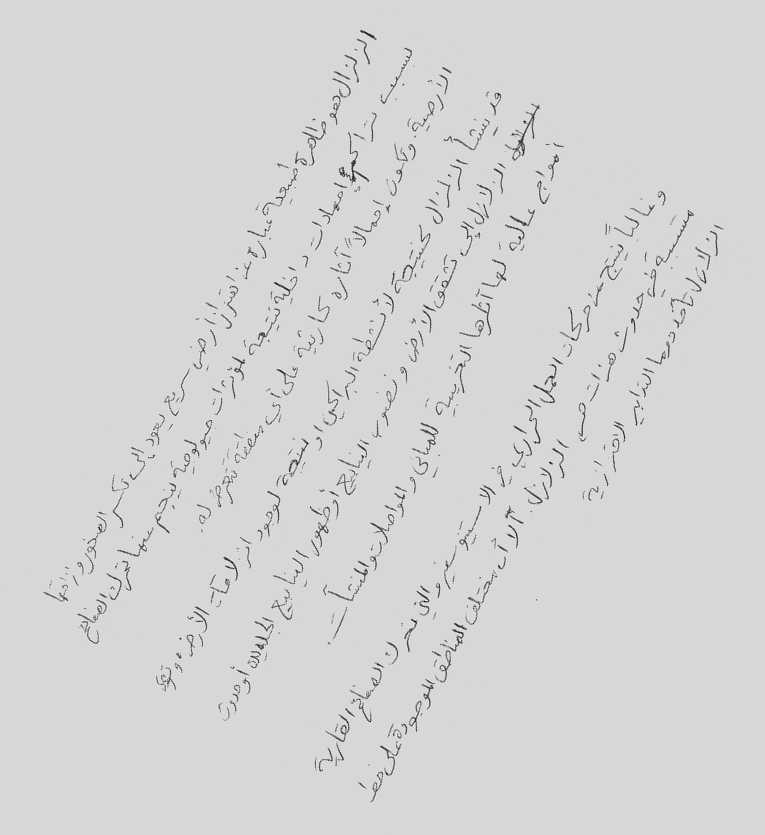 الزلزال هو ظاهرة طبيعية عبارة عن اهتزاز أرضي سريع يعود إلى تكسر الصخور وإزاحتها
بسبب تراكم إجهادات داخلية نتيجة لمؤثرات جيولوجية ينجم عنها تحرك الصفائح
الأرضية. وتكون إجمالاً آثاره كارثية على أي منطقة تتعرض له.
قد ينشأ الزلزال كنتيجة لأنشطة البراكين أو نتيجة لوجود انزلاقات الأرض. وتؤدي
الزلازل إلى تشقق الأرض ونضوب الينابيع أو ظهور الينابيع الجديدة أو حدوث
أمواج عالية لها آثارها التخريبية للمباني والمواصلات والمنشآت.
وغالباً ينتج عن حركات الحمل الحراري في الاستينوسفير والتي تحرك الصفائح القارية
متسببة في حدوث هزات هي الزلازل. ألا أن مختلف المناطق الموجودة على خط
الزلازل تأخذ دوما التدابير الاحترازية